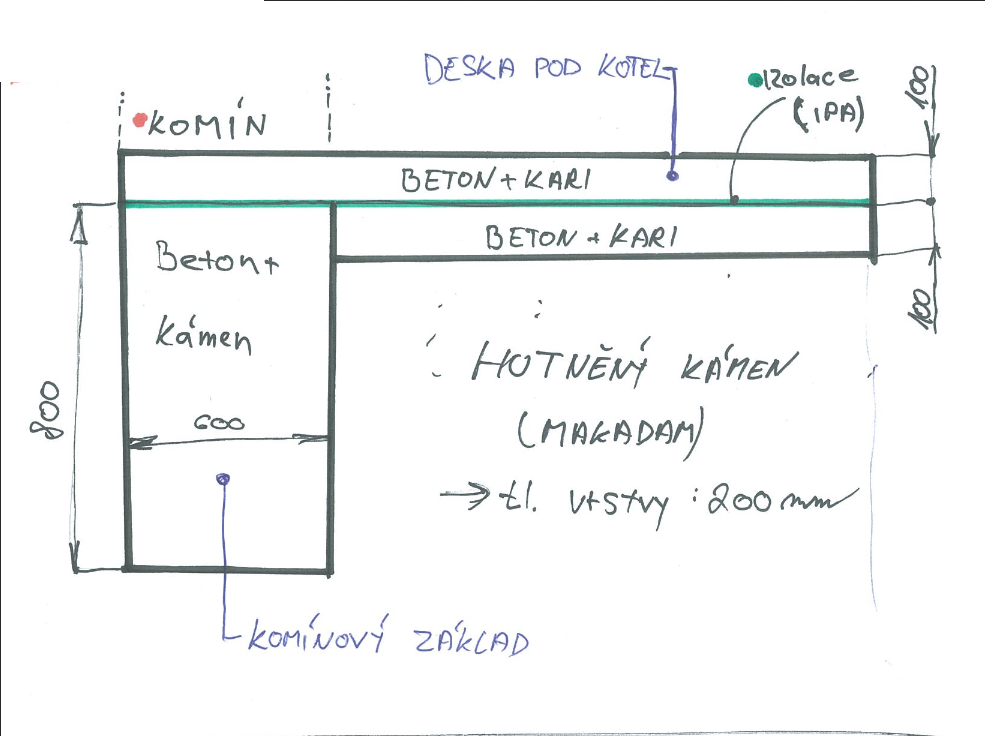 DESKA POD KOTEL
Izolace
(IPA)
100
KOMÍN
BETON + KARI
BETON + KARI
Beton+
kámen
100
HOTNĚNÝ KÁMEN
(MAKADAM)
800
600
→ tl. vrstvy : 200 mm
KOMÍNOVÝ ZÁKLAD